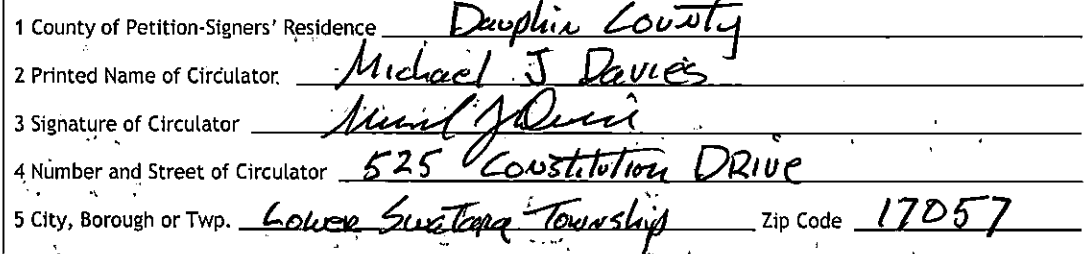 1 County of Petition-Signers' Residence Dauphin County
2 Printed Name of Circulator. Michael J Davies
3 Signature of Circulator
4 Number and Street of Circulator 525 Constitution DRIVE
5 City, Borough or Twp. Lower Swatara Township Zip Code 17057